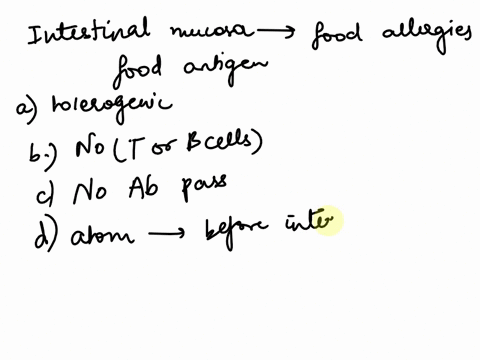 Intestinal mucosa → food allergies
food antigen
a) tolerogenic
b.) No (T or B cells)
c) No Ab pass
d) atom → before inte